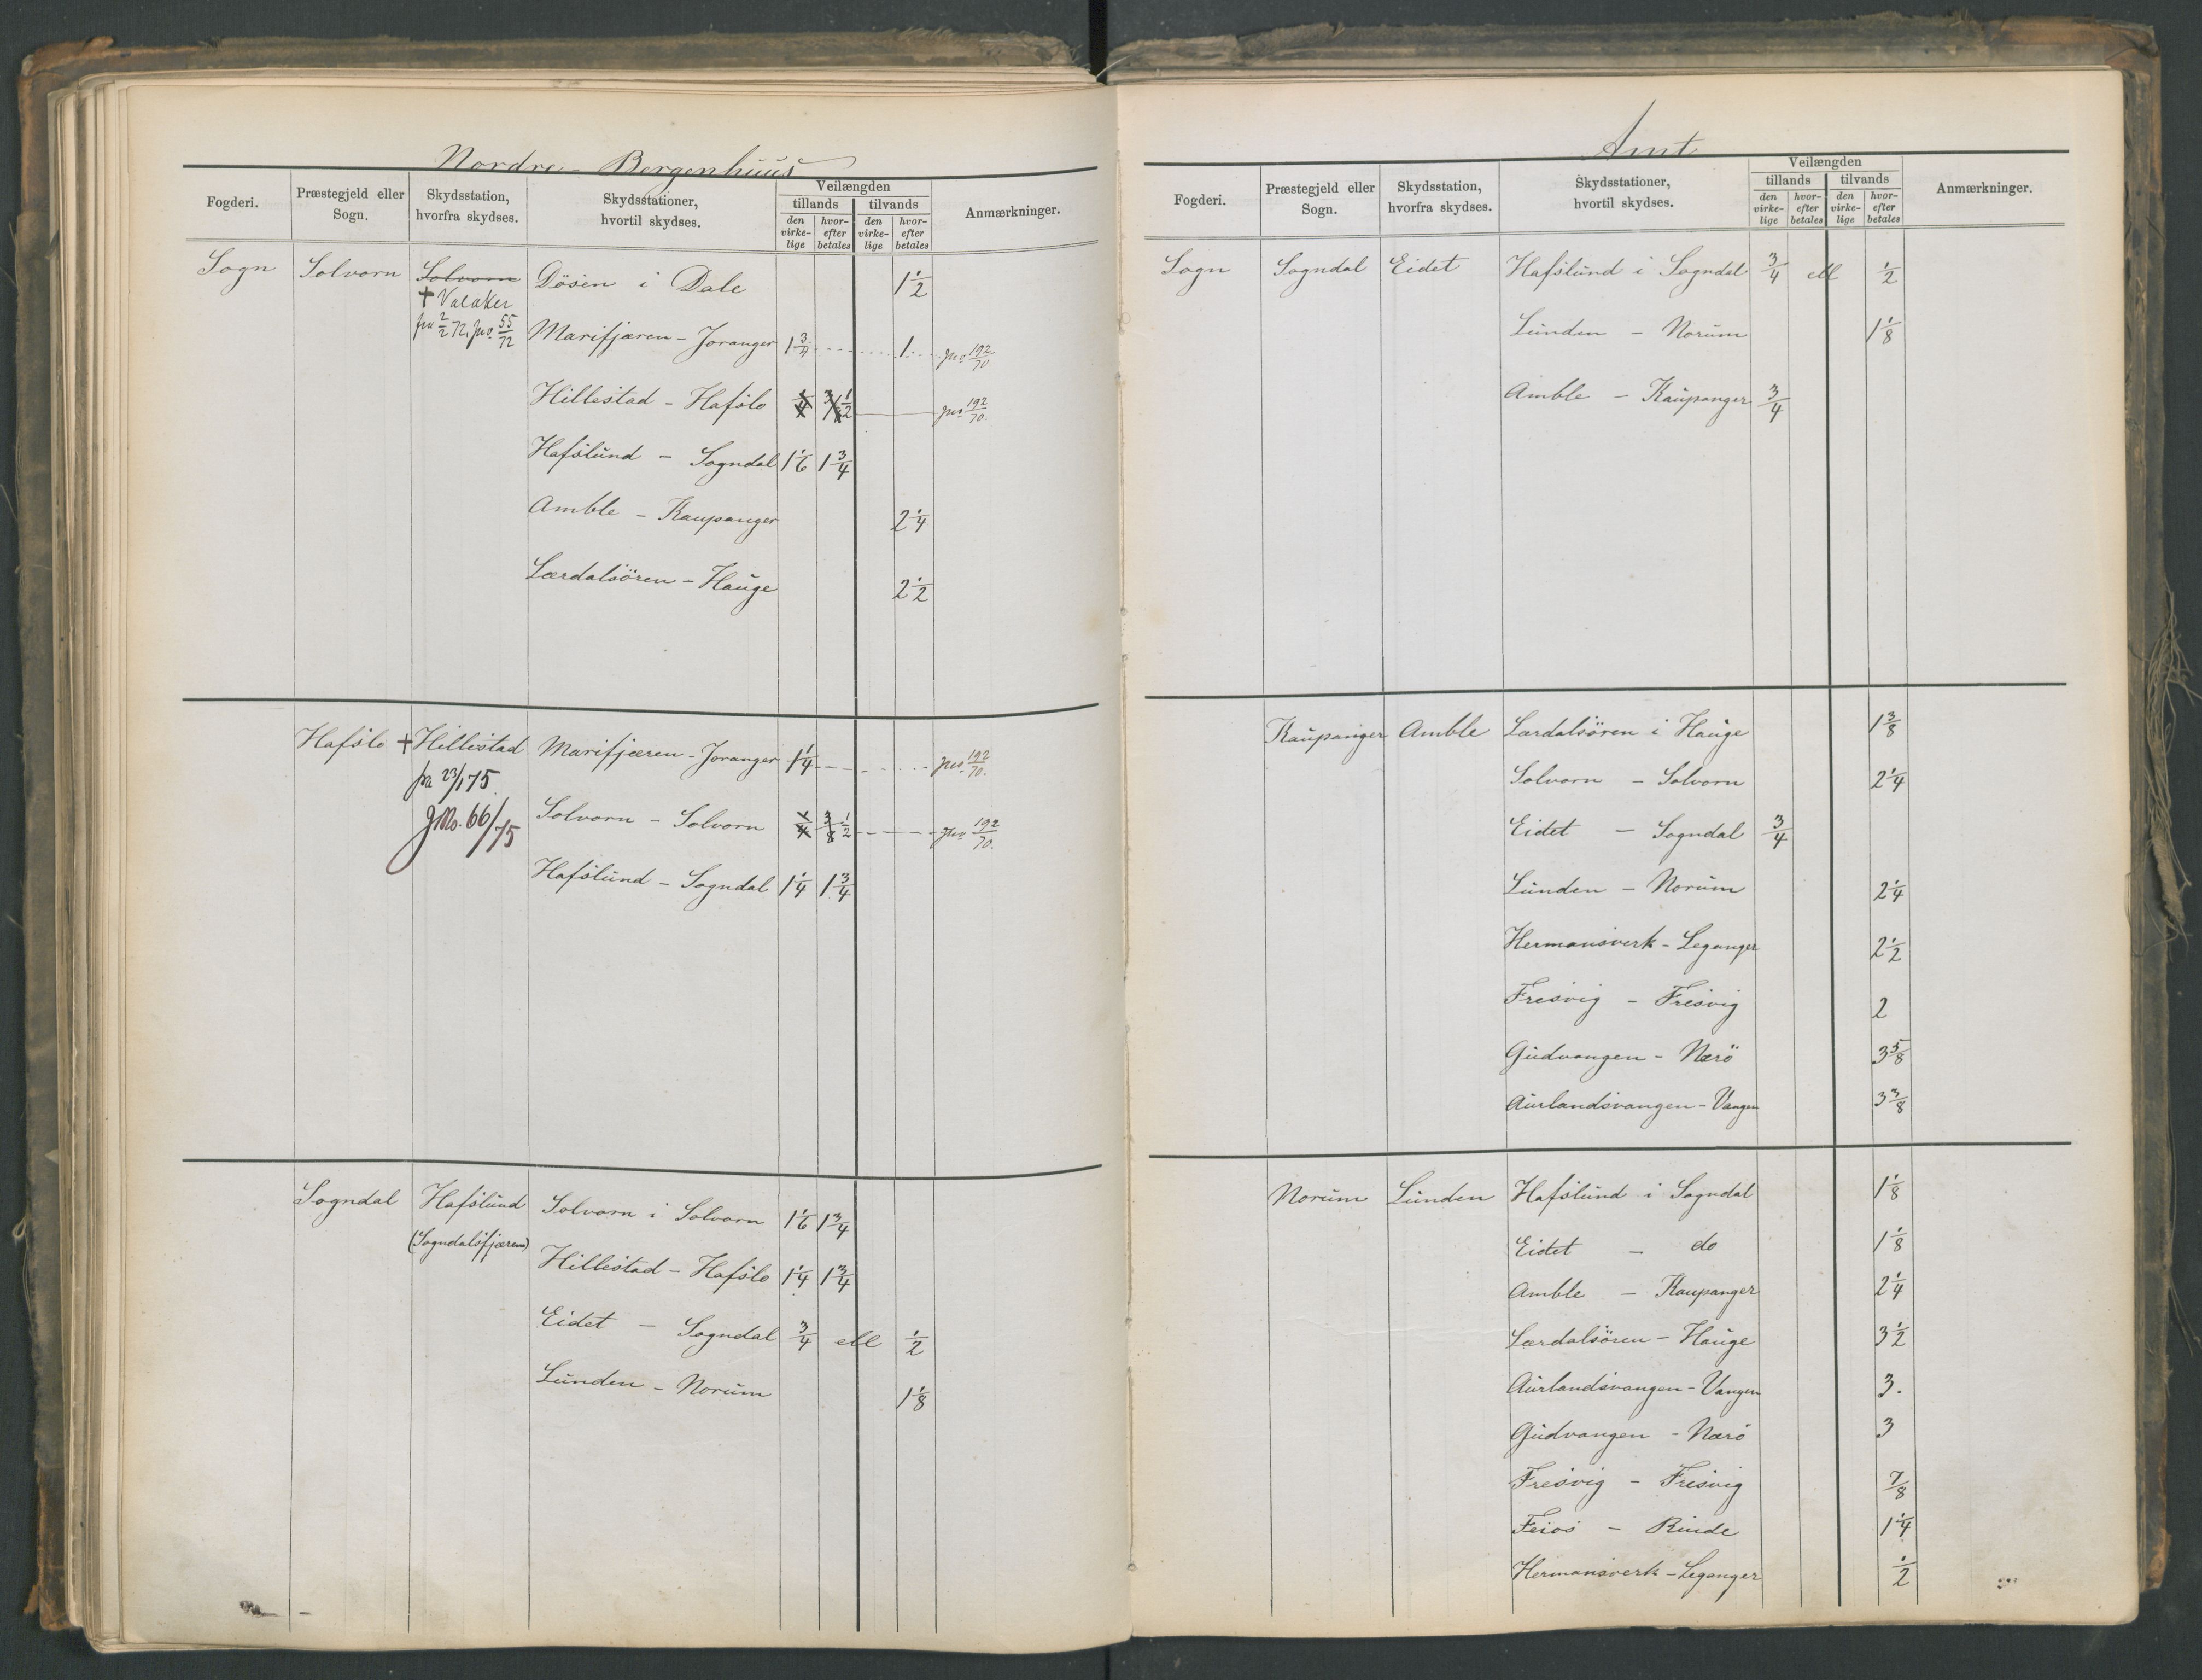 Nordre - Bergenhuus
Fogderi.
Præstegjeld eller Sogn.
Skydsstation, hvorfra skydses.
Skydsstationer, hvortil skydses.
Veilængden
tillands
tilvands
den virke-lige
hvor-efter betales
den virke-lige
hvor-efter betales
Anmærkninger.
Sogn Solvorn Solvorn Dösen i Dale 1 1/2
+ Valaker
fra 2/2 72, jno. 55/72
Marifjæren - Joranger 1 3/4 1 jno 192/70
Hillestad - Hafslo 1/4 3/8 1/2 jno 192/70.
Hafslund - Sogndal 1 1/6 1 3/4
Amble - Kaupanger 2 1/4
Lærdalsören - Hauge 2 1/2
Hafslo + Hillestad Marifjæren - Joranger 1 1/4 jno 192/70.
fra 23/1 75.
JNo. 66/75
Solvorn - Solvorn 1/4 3/8 1/2 jno 192/70.
Hafslund - Sogndal 1 1/4 1 3/4
Sogndal Hafslund Solvorn i Solvorn 1 1/6 1 3/4
(Sogndalsfjæren)
Hillestad - Hafslo 1 1/4 1 3/4
Eidet - Sogndal 3/4 ell 1/2
Lunden - Norum 1 1/8
Amt
Fogderi.
Præstegjeld eller Sogn.
Skydsstation, hvorfra skydses.
Skydsstationer, hvortil skydses.
Veilængden
tillands
tilvands
den virke-lige
hvor-efter betales
den virke-lige
hvor-efter betales
Anmærkninger.
Sogn Sogndal Eidet Hafslund i Sogndal 3/4 ell 1/2
Lunden - Norum 1 1/8
Amble - Kaupanger 3/4
Kaupanger Amble Lærdalsören i Hauge 1 3/8
Solvorn - Solvorn 2 1/4
Eidet - Sogndal 3/4
Lunden - Norum 2 1/4
Hermansverk - Leganger 2 1/2
Fresvig - Fresvig 2
Gudvangen - Nærö 3 5/8
Aurlandsvangen - Vangen 3 3/8
Norum Lunden Hafslund i Sogndal 1 1/8
Eidet - do 1 1/8
Amble - Kaupanger 2 1/4
Lærdalsören - Hauge 3 1/2
Aurlandsvangen - Vangen 3.
Gudvangen - Nærö 3
Fresvig - Fresvig 7/8
Feios - Rinde 1 1/4
Hermansverk - Leganger 1/2